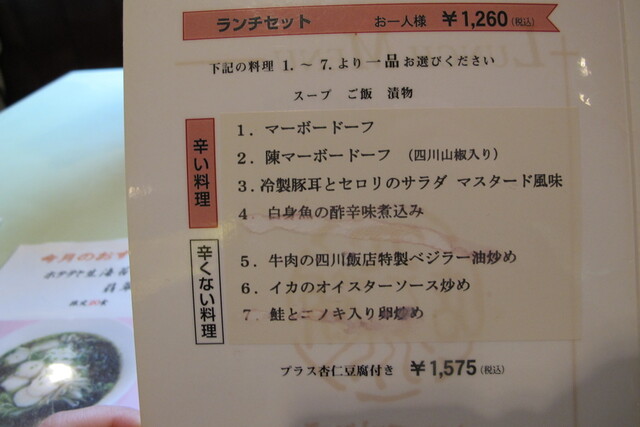 ランチセット お一人様 ¥1,260(税込)
下記の料理 1. ～ 7. より一品お選びください
スープ ご飯 漬物
辛い料理
1. マーボードーフ
2. 陳マーボードーフ (四川山椒入り)
3. 冷製豚耳とセロリのサラダ マスタード風味
4 白身魚の酢辛味煮込み
辛くない料理
5. 牛肉の四川飯店特製ベジラー油炒め
6. イカのオイスターソース炒め
7. 鮭とエノキ入り卵炒め
プラス杏仁豆腐付き ¥1,575(税込)
今月のおす